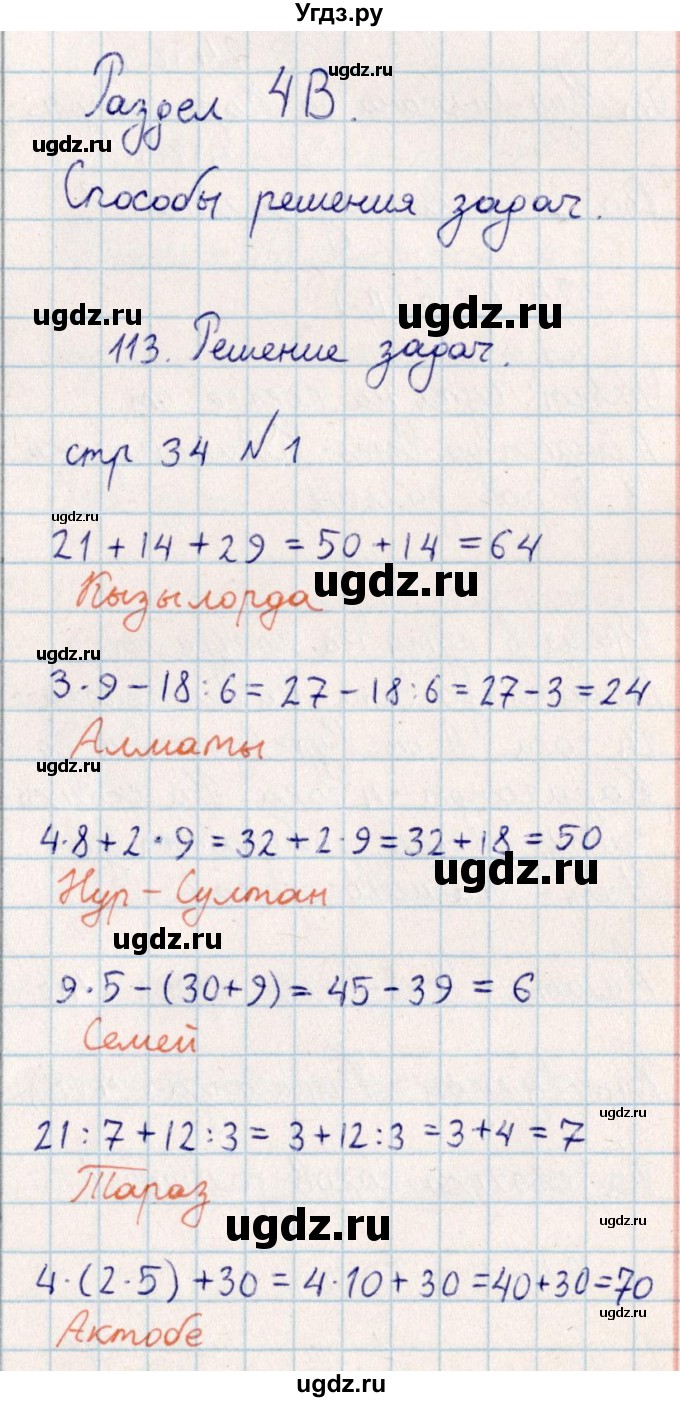 Угдз.ру
ugdz.ru
Раздел 4В.
ugdz.ru
Способы решения задач.
ugdz.ru
ugdz.ru
113. Решение задач.
стр 34 №1
ugdz.ru
21 + 14 + 29 = 50 + 14 = 64
ugdz.ru
Кызылорда
ugdz.ru
3·9 - 18 : 6 = 27 - 18 : 6 = 27 - 3 = 24
Алматы
ugdz.ru
4·8 + 2·9 = 32 + 2·9 = 32 + 18 = 50
ugdz.ru
Нур-Султан
ugdz.ru
9·5 - (30+9) = 45 - 39 = 6
Семей
ugdz.ru
21 : 7 + 12 : 3 = 3 + 12 : 3 = 3 + 4 = 7
Тараз
ugdz.ru
ugdz.ru
4·(2·5) + 30 = 4·10 + 30 = 40 + 30 = 70
ugdz.ru
Актобе
ugdz.ru